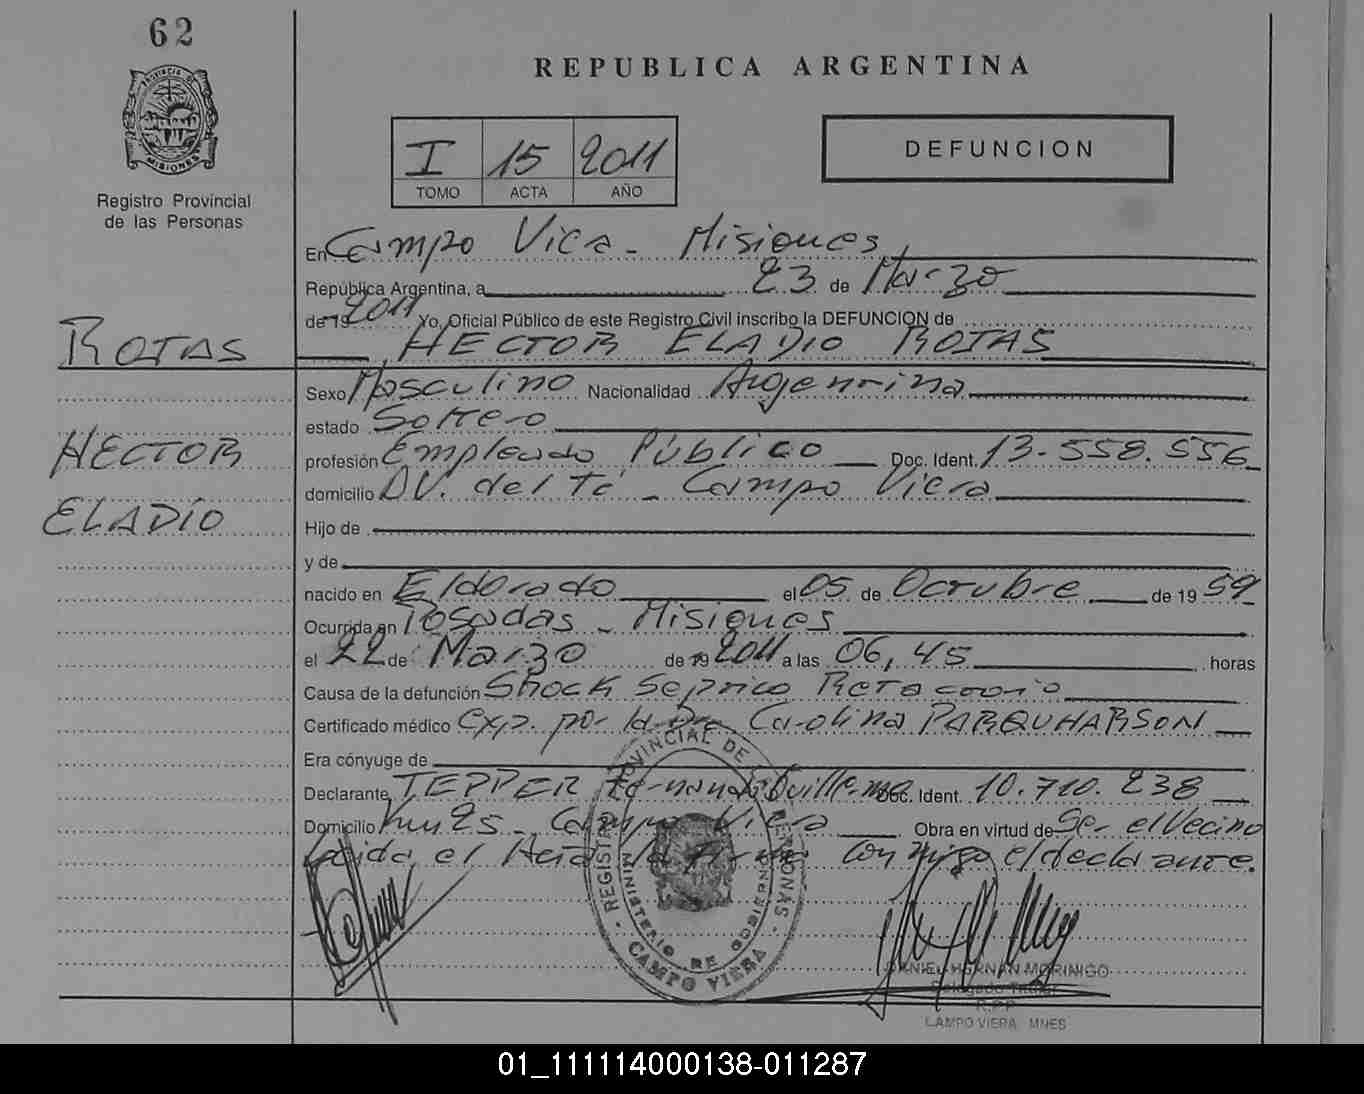 62
PROVINCIA DE
MISIONES
Registro Provincial
de las Personas
REPUBLICA ARGENTINA
I 15 2011
TOMO ACTA AÑO
DEFUNCION
En Campo Viera - Misiones
República Argentina, a 23 de Marzo
de 19 2011 Yo, Oficial Público de este Registro Civil inscribo la DEFUNCION de
ROJAS HECTOR ELADIO ROJAS
Sexo Masculino Nacionalidad Argentina
estado Soltero
HECTOR profesión Empleado Público Doc. Ident. 13.558.556
domicilio AV. del Té - Campo Viera
ELADIO Hijo de
y de
nacido en Eldorado el 05 de Octubre de 19 59
Ocurrida en Posadas - Misiones
el 22 de Marzo de 19 2011 a las 06,45 horas
Causa de la defunción Shock Septico Refactario
Certificado médico Exp. por la Dra Carolina PARQUHARSON
Era cónyuge de
Declarante TEPPER Fernando Guillermo Doc. Ident. 10.710.238
Domicilio Km 25 - Campo Viera Obra en virtud de Ser el Vecino
Leída el Acta la Firma conmigo el declarante.
REGISTRO PROVINCIAL DE PERSONAS
MINISTERIO DE GOBIERNO
CAMPO VIERA
DANIEL HERNAN MORINIGO
Delegado Titular
R.P.P.
CAMPO VIERA MNES
01_111114000138-011287